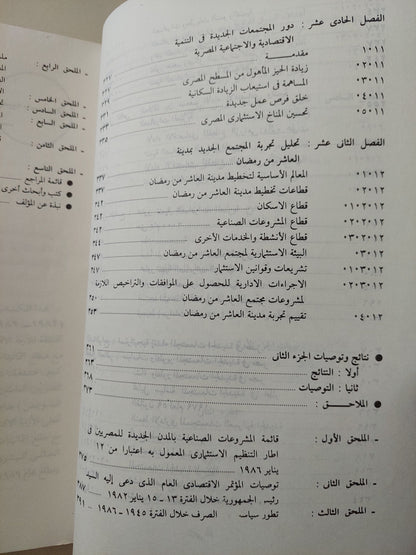 الفصل الحادى عشر : دور المجتمعات الجديدة فى التنمية
الاقتصادية والاجتماعية المصرية
مقدمـــة
١٠١١
٠٢٠١١ زيادة الحيز المأهول من المسطح المصرى
٠٣٠١١ المساهمة فى استيعاب الزيادة السكانية
٠٤٠١١ خلق فرص عمل جديدة
٠٥٠١١ تحسين المناخ الاستثمارى المصرى
الفصل الثانى عشر : تحليل تجربة المجتمع الجديد بمدينة
العاشر من رمضان ٣٣٧
٠١٠١٢ المعالم الأساسية لتخطيط مدينة العاشر من رمضان ٣٣٧
٠٢٠١٢ قطاعات تخطيط مدينة العاشر من رمضان
٠١٠٢٠١٢ قطاع الاسكان ٣٤٢
٠٢٠٢٠١٢ قطاع المشروعات الصناعية ٣٤٢
٠٣٠٢٠١٢ قطاع الأنشطة والخدمات الأخرى ٣٤٤
٠٣٠١٢ البيئة الاستثمارية لمجتمع العاشر من رمضان
٠١٠٣٠١٢ تشريعات وقوانين الاستثمار ٢٤٧
٠٢٠٣٠١٢ الاجراءات الادارية للحصول على الموافقات والتراخيص اللازمة
لمشروعات مجتمع العاشر من رمضان ٣٥٠
٠٤٠١٢ تقييم تجربة مدينة العاشر من رمضان ٣٥٣
● نتائج وتوصيات الجزء الثانى ٣٦١
أولا : النتائج ٣٦٣
ثانيا : التوصيات ٣٦٨
● الملاحـــق : ٣٧٣
- الملحق الأول : قائمة المشروعات الصناعية بالمدن الجديدة للمصريين فى
اطار التنظيم الاستثمارى المعمول به اعتبارا من ١٢
يناير ١٩٨٦ ٣٧٥
- الملحق الثانى : توصيات المؤتمر الاقتصادى العام الذى دعى إليه السيد
رئيس الجمهورية خلال الفترة ١٣ – ١٥ يناير ١٩٨٢ ٣٨٧
- الملحق الثالث : تطور سياسة الصرف خلال الفترة ١٩٤٥ – ١٩٨٦ ٣٩١
- الملحق الرابع :
- الملحق الخامس :
- الملحق السادس :
- الملحق السابع :
- الملحق الثامن :
- الملحق التاسع :
● قائمة المراجع
● كتب وأبحاث أخرى
● نبذة عن المؤلف